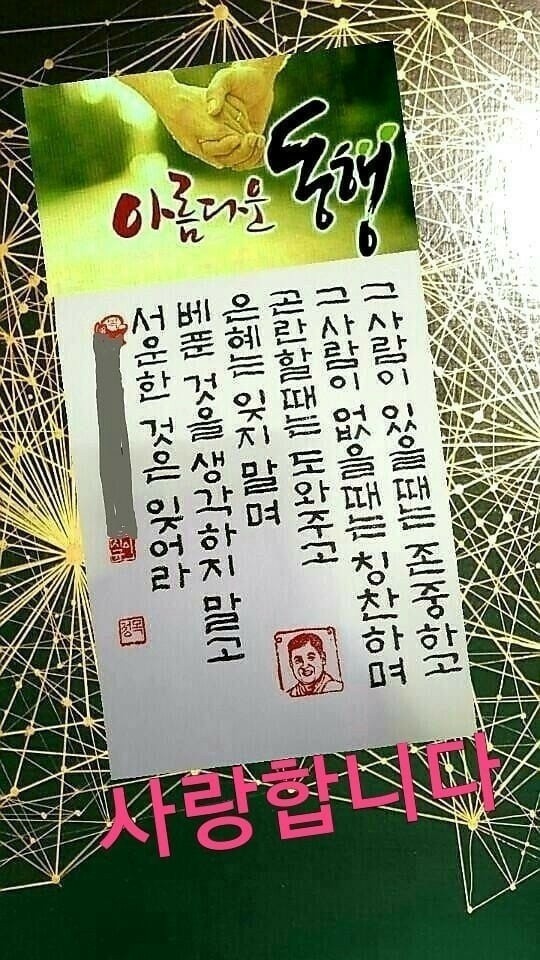 아름다운 동행
그 사람이 있을때는 존중하고
그 사람이 없을때는 칭찬하며
곤란할때는 도와주고
은혜는 잊지 말며
베푼 것을 생각하지 말고
서운한 것은 잊어라
정목
사랑합니다